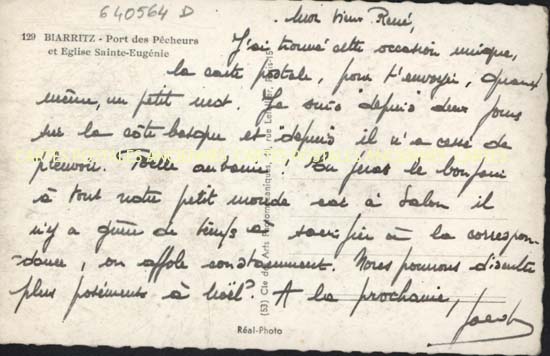 640564 D
129 BIARRITZ - Port des Pêcheurs
et Eglise Sainte-Eugénie
Mon vieux René,
J'ai trouvé cette occasion unique,
la carte postale, pour t'envoyer, quand
même, un petit mot. Je suis depuis deux jours
sur la côte basque et depuis il n'a cessé de
pleuvoir. Belle aubaine! Tu feras le bonjour
à tout notre petit monde car à Salon il
n'y a guère de temps à sacrifier à la correspon-
dance, on affole constamment. Nous pourrons discuter
plus posément à Noël? A la prochaine,
Jacob
(53) Cie des Arts Photomécaniques, 11, rue Paris-15
Réal-Photo